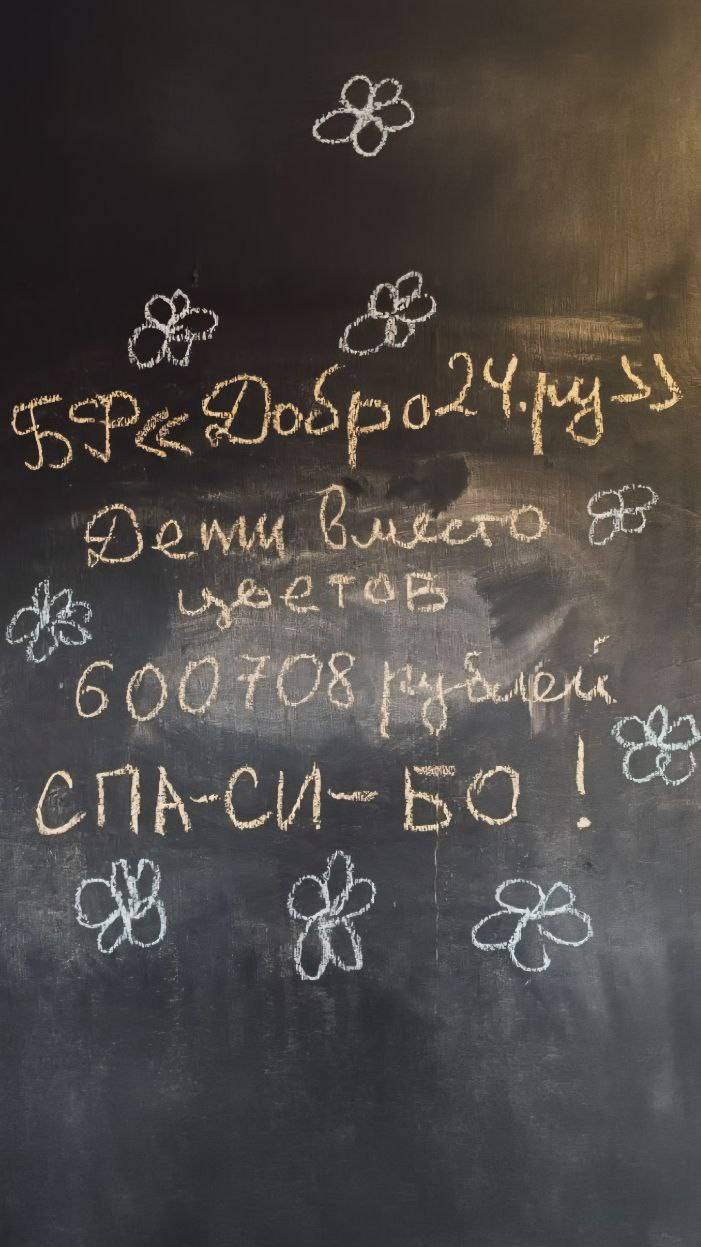 БФ «Добро24.ру»
Дети вместо
цветов
600708 рублей
СПА-СИ-БО!